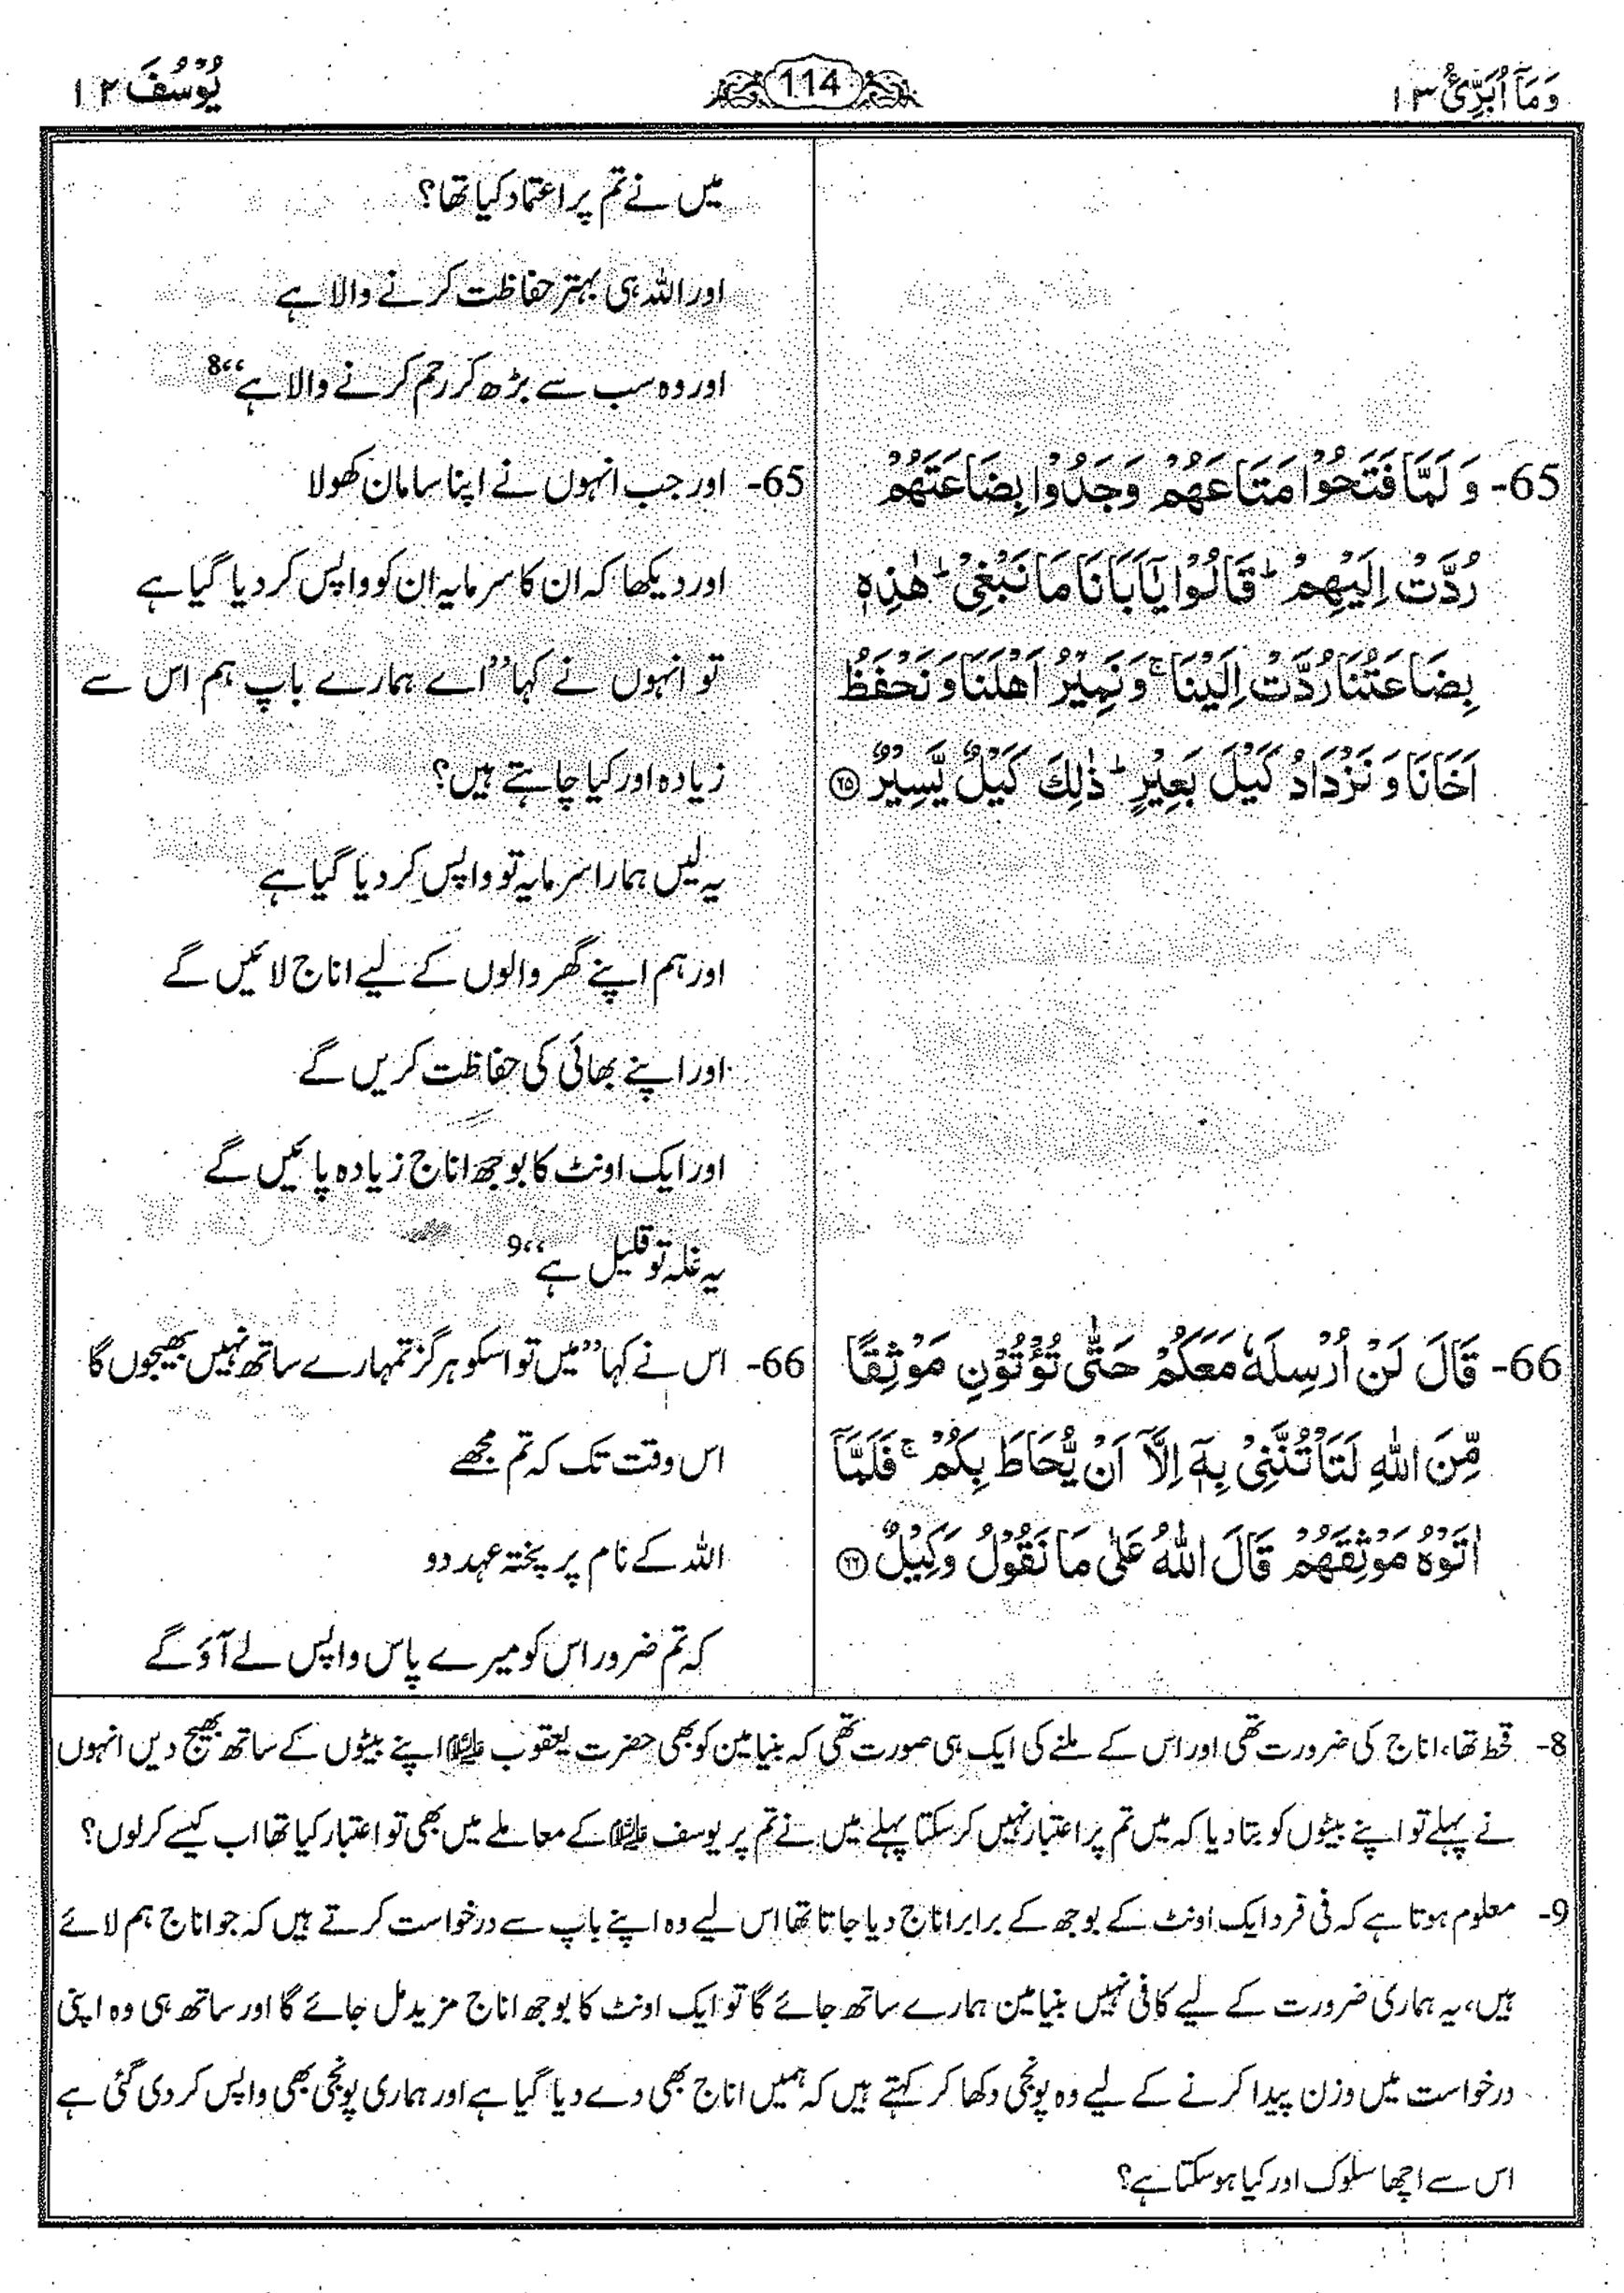 وَمَآ اُبَرِّئُ ۱۳
114
یُوْسُفَ ۱۲
میں نے تم پر اعتماد کیا تھا؟
اور اللہ ہی بہتر حفاظت کرنے والا ہے
اور وہ سب سے بڑھ کر رحم کرنے والا ہے“8
65- وَ لَمَّا فَتَحُوْا مَتَاعَهُمْ وَجَدُوْا بِضَاعَتَهُمْ
رُدَّتْ اِلَيْهِمْ ؕ قَالُوْا يٰۤاَبَانَا مَا نَبْغِیْ ؕ هٰذِهٖ
بِضَاعَتُنَا رُدَّتْ اِلَيْنَا ۚ وَ نَمِيْرُ اَهْلَنَا وَ نَحْفَظُ
اَخَانَا وَ نَزْدَادُ كَيْلَ بَعِيْرٍ ؕ ذٰلِكَ كَيْلٌ يَّسِيْرٌ ۶۵
65- اور جب انہوں نے اپنا سامان کھولا
اور دیکھا کہ ان کا سرمایہ ان کو واپس کر دیا گیا ہے
تو انہوں نے کہا ”اے ہمارے باپ ہم اس سے
زیادہ اور کیا چاہتے ہیں؟
یہ لیں ہمارا سرمایہ تو واپس کر دیا گیا ہے
اور ہم اپنے گھر والوں کے لیے اناج لائیں گے
اور اپنے بھائی کی حفاظت کریں گے
اور ایک اونٹ کا بوجھ اناج زیادہ پائیں گے
یہ غلہ تو قلیل ہے“9
66- قَالَ لَنْ اُرْسِلَهٗ مَعَكُمْ حَتّٰى تُؤْتُوْنِ مَوْثِقًا
مِّنَ اللّٰهِ لَتَاْتُنَّنِیْ بِهٖۤ اِلَّاۤ اَنْ يُّحَاطَ بِكُمْ ۚ فَلَمَّاۤ
اٰتَوْهُ مَوْثِقَهُمْ قَالَ اللّٰهُ عَلٰى مَا نَقُوْلُ وَكِيْلٌ ۶۶
66- اس نے کہا ”میں تو اسکو ہرگز تمہارے ساتھ نہیں بھیجوں گا
اس وقت تک کہ تم مجھے
اللہ کے نام پر پختہ عہد دو
کہ تم ضرور اس کو میرے پاس واپس لے آؤ گے
8- قحط تھا، اناج کی ضرورت تھی اور اس کے ملنے کی ایک ہی صورت تھی کہ بنیامین کو بھی حضرت یعقوب علیہ السلام اپنے بیٹوں کے ساتھ بھیج دیں انہوں
نے پہلے تو اپنے بیٹوں کو بتا دیا کہ میں تم پر اعتبار نہیں کر سکتا پہلے میں نے تم پر یوسف علیہ السلام کے معاملے میں بھی تو اعتبار کیا تھا اب کیسے کر لوں؟
9- معلوم ہوتا ہے کہ فی فرد ایک اونٹ کے بوجھ کے برابر اناج دیا جاتا تھا اس لیے وہ اپنے باپ سے درخواست کرتے ہیں کہ جو اناج ہم لائے
ہیں، یہ ہماری ضرورت کے لیے کافی نہیں بنیامین ہمارے ساتھ جائے گا تو ایک اونٹ کا بوجھ اناج مزید مل جائے گا اور ساتھ ہی وہ اپنی
درخواست میں وزن پیدا کرنے کے لیے وہ پونجی دکھا کر کہتے ہیں کہ ہمیں اناج بھی دے دیا گیا ہے اور ہماری پونجی بھی واپس کر دی گئی ہے
اس سے اچھا سلوک اور کیا ہو سکتا ہے؟